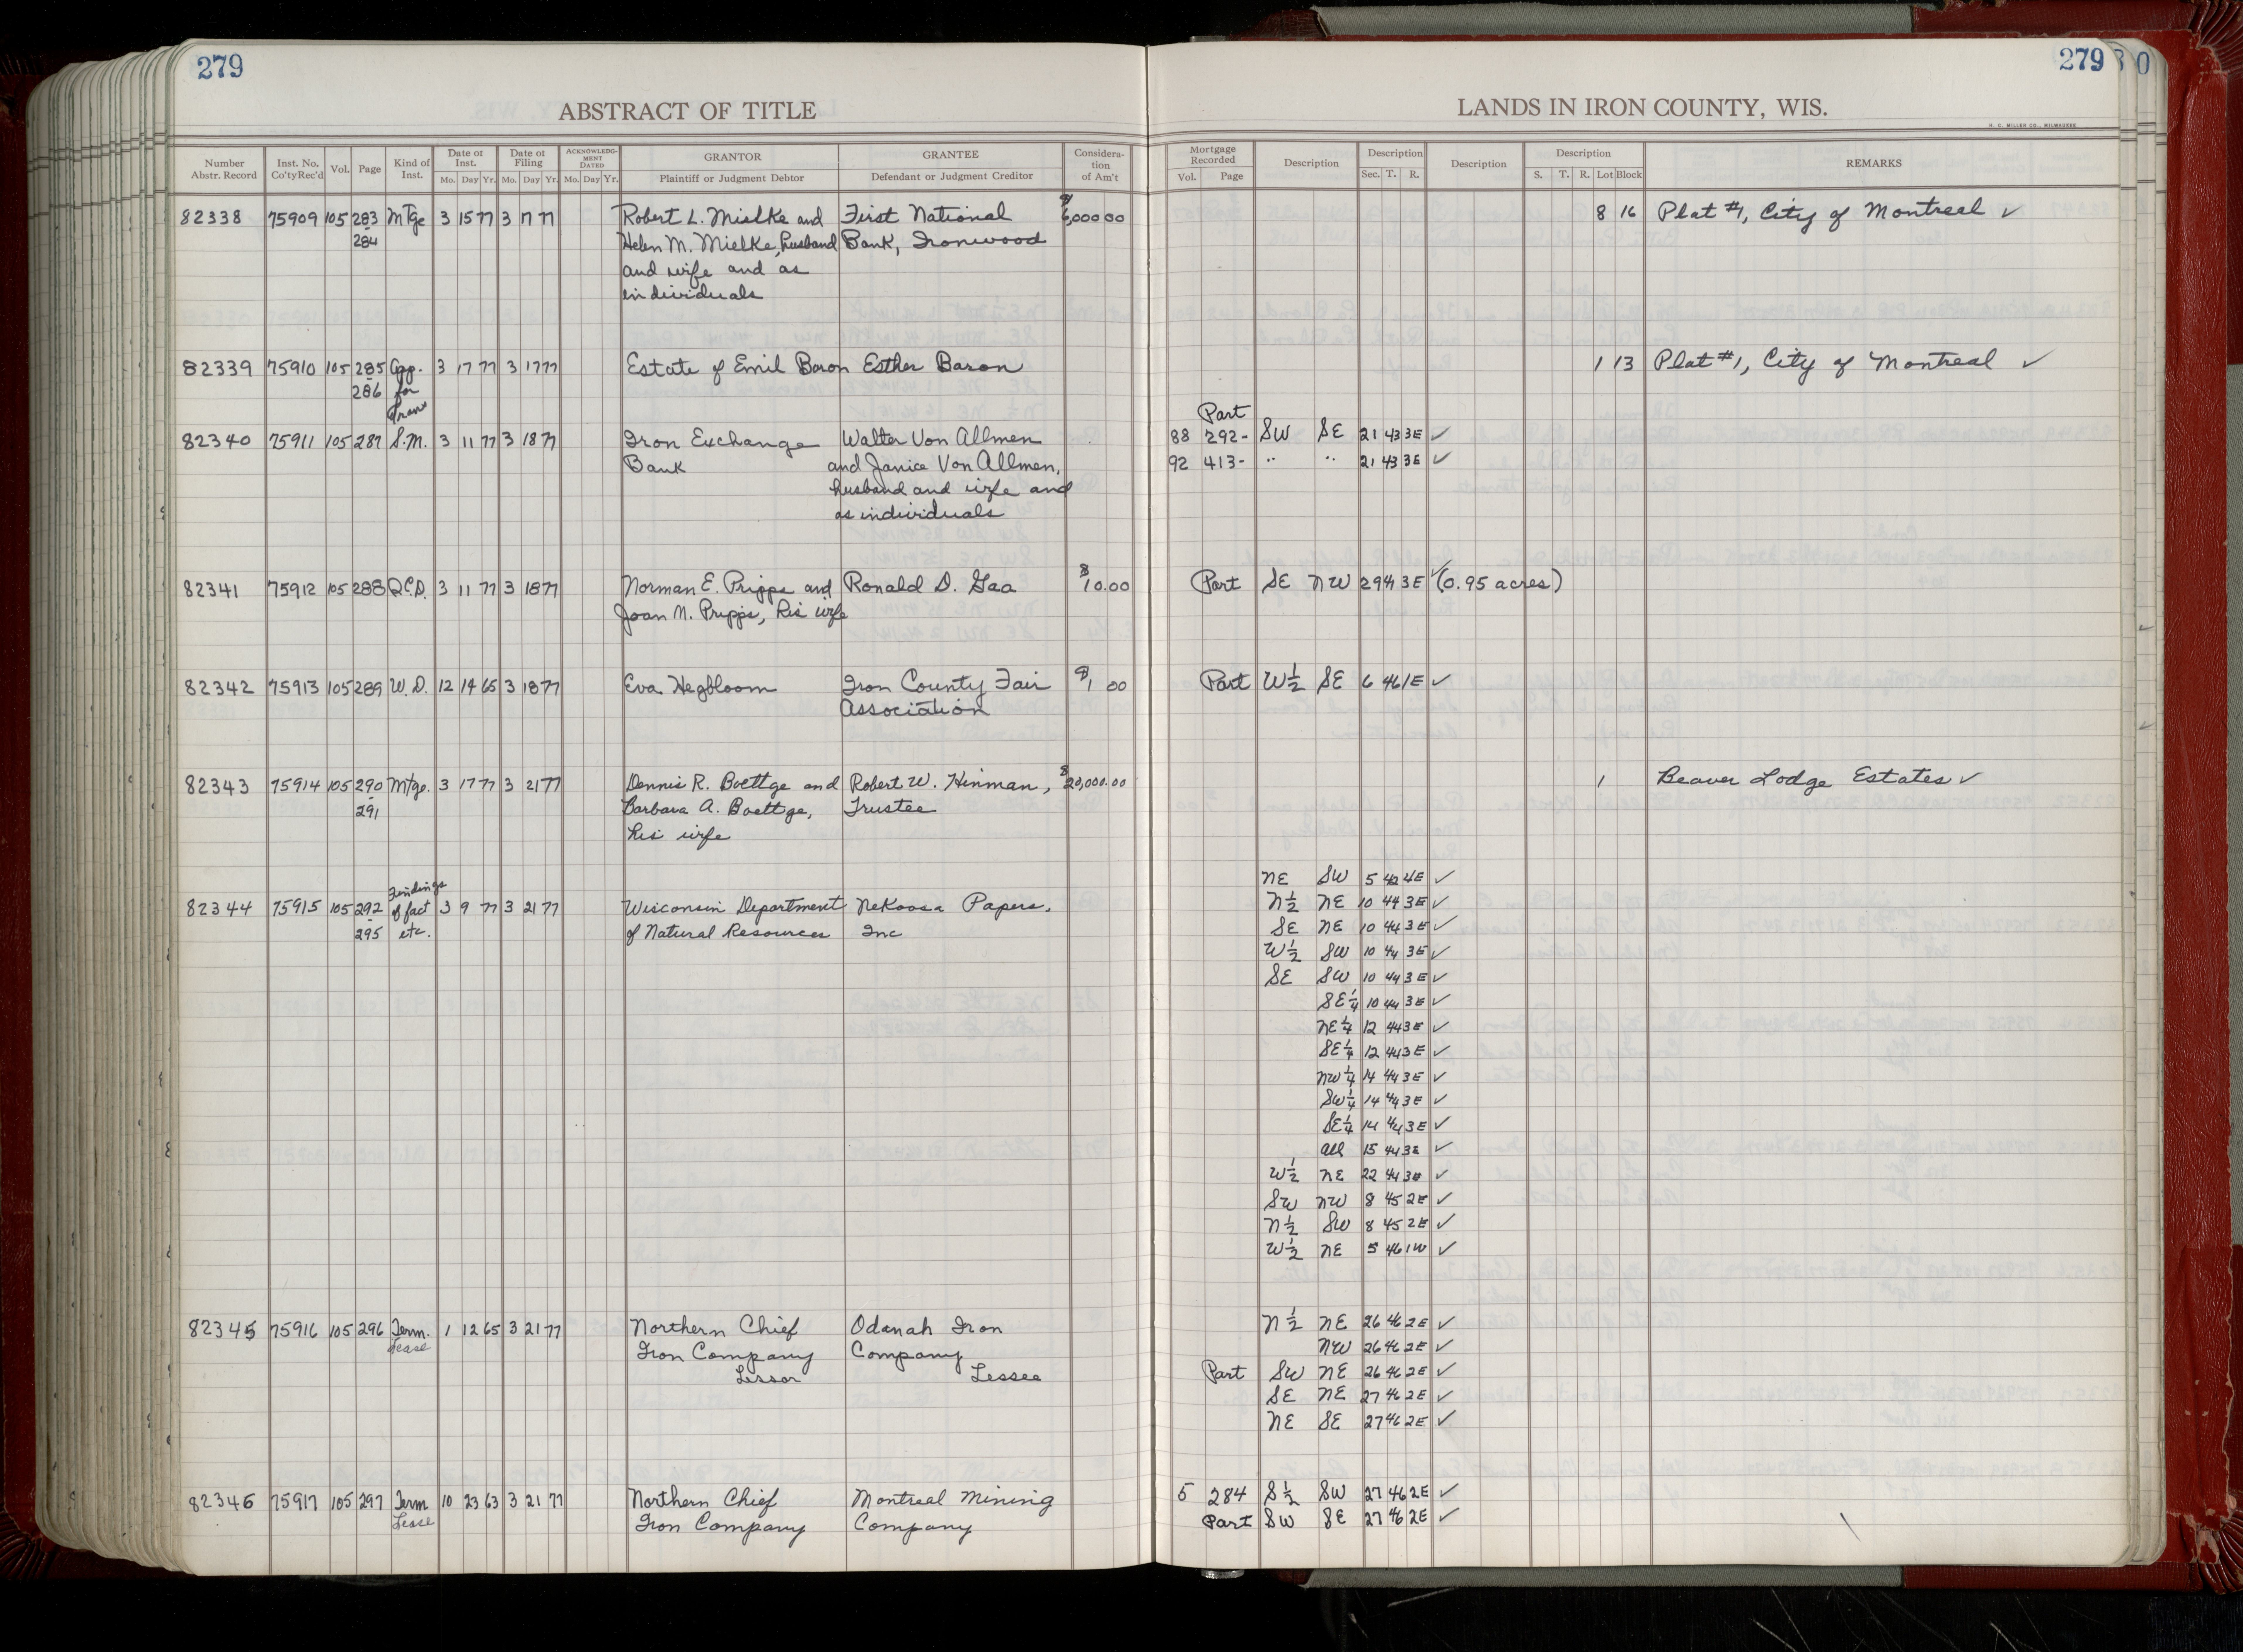 279
279
0
ABSTRACT OF TITLE
LANDS IN IRON COUNTY, WIS.
H. C. MILLER CO., MILWAUKEE
Number Abstr. Record Inst. No. Co'ty Rec'd Vol. Page Kind of Inst. Date of Inst. Mo. Day Yr. Date of Filing Mo. Day Yr. ACKNOWLEDGMENT DATED Mo. Day Yr. GRANTOR Plaintiff or Judgment Debtor GRANTEE Defendant or Judgment Creditor Consideration of Am't
Mortgage Recorded Vol. Page Description Description Sec. T. R. Description Description S. T. R. Lot Block REMARKS
82338 75909 105 283 Mtge 3 15 77 3 17 77 Robert L. Mielke and First National $6,000 00 8 16 Plat #1, City of Montreal ✓
284 Helen M. Mielke, husband Bank, Ironwood
and wife and as
individuals
82339 75910 105 285 App. 3 17 77 3 17 77 Estate of Emil Baron Esther Baron 1 13 Plat #1, City of Montreal ✓
286 for
Tran
Part
82340 75911 105 287 S.M. 3 11 77 3 18 77 Iron Exchange Walter Von Allmen 88 292- SW SE 21 43 3E ✓
Bank and Janice Von Allmen, 92 413- " " 21 43 3E ✓
husband and wife and
as individuals
82341 75912 105 288 Q.C.D. 3 11 77 3 18 77 Norman E. Pripps and Ronald D. Gaa $10.00 Part SE NW 29 4 3E ✓ (0.95 acres)
Joan N. Pripps, his wife
82342 75913 105 289 W.D. 12 14 65 3 18 77 Eva Hegbloom Iron County Fair $1 00 Part W½ SE 6 46 1E ✓
Association
82343 75914 105 290 Mtge. 3 17 77 3 21 77 Dennis R. Boettge and Robert W. Hinman, $20,000.00 1 Beaver Lodge Estates ✓
291 Barbara A. Boettge, Trustee
his wife
NE SW 5 42 4E ✓
Findings
82344 75915 105 292 of fact 3 9 77 3 21 77 Wisconsin Department Nekoosa Papers, N½ NE 10 44 3E ✓
295 etc. of Natural Resources Inc SE NE 10 44 3E ✓
W½ SW 10 44 3E ✓
SE SW 10 44 3E ✓
SE¼ 10 44 3E ✓
NE¼ 12 44 3E ✓
SE¼ 12 44 3E ✓
NW¼ 14 44 3E ✓
SW¼ 14 44 3E ✓
SE¼ 14 44 3E ✓
all 15 44 3E ✓
W½ NE 22 44 3E ✓
SW NW 8 45 2E ✓
N½ SW 8 45 2E ✓
W½ NE 5 46 1W ✓
82345 75916 105 296 Term. 1 12 65 3 21 77 Northern Chief Odanah Iron N½ NE 26 46 2E ✓
Lease Iron Company Company NW 26 46 2E ✓
Lessor Lessee Part SW NE 26 46 2E ✓
SE NE 27 46 2E ✓
NE SE 27 46 2E ✓
82346 75917 105 297 Term 10 23 63 3 21 77 Northern Chief Montreal Mining 5 284 S½ SW 27 46 2E ✓
Lease Iron Company Company Part SW SE 27 46 2E ✓